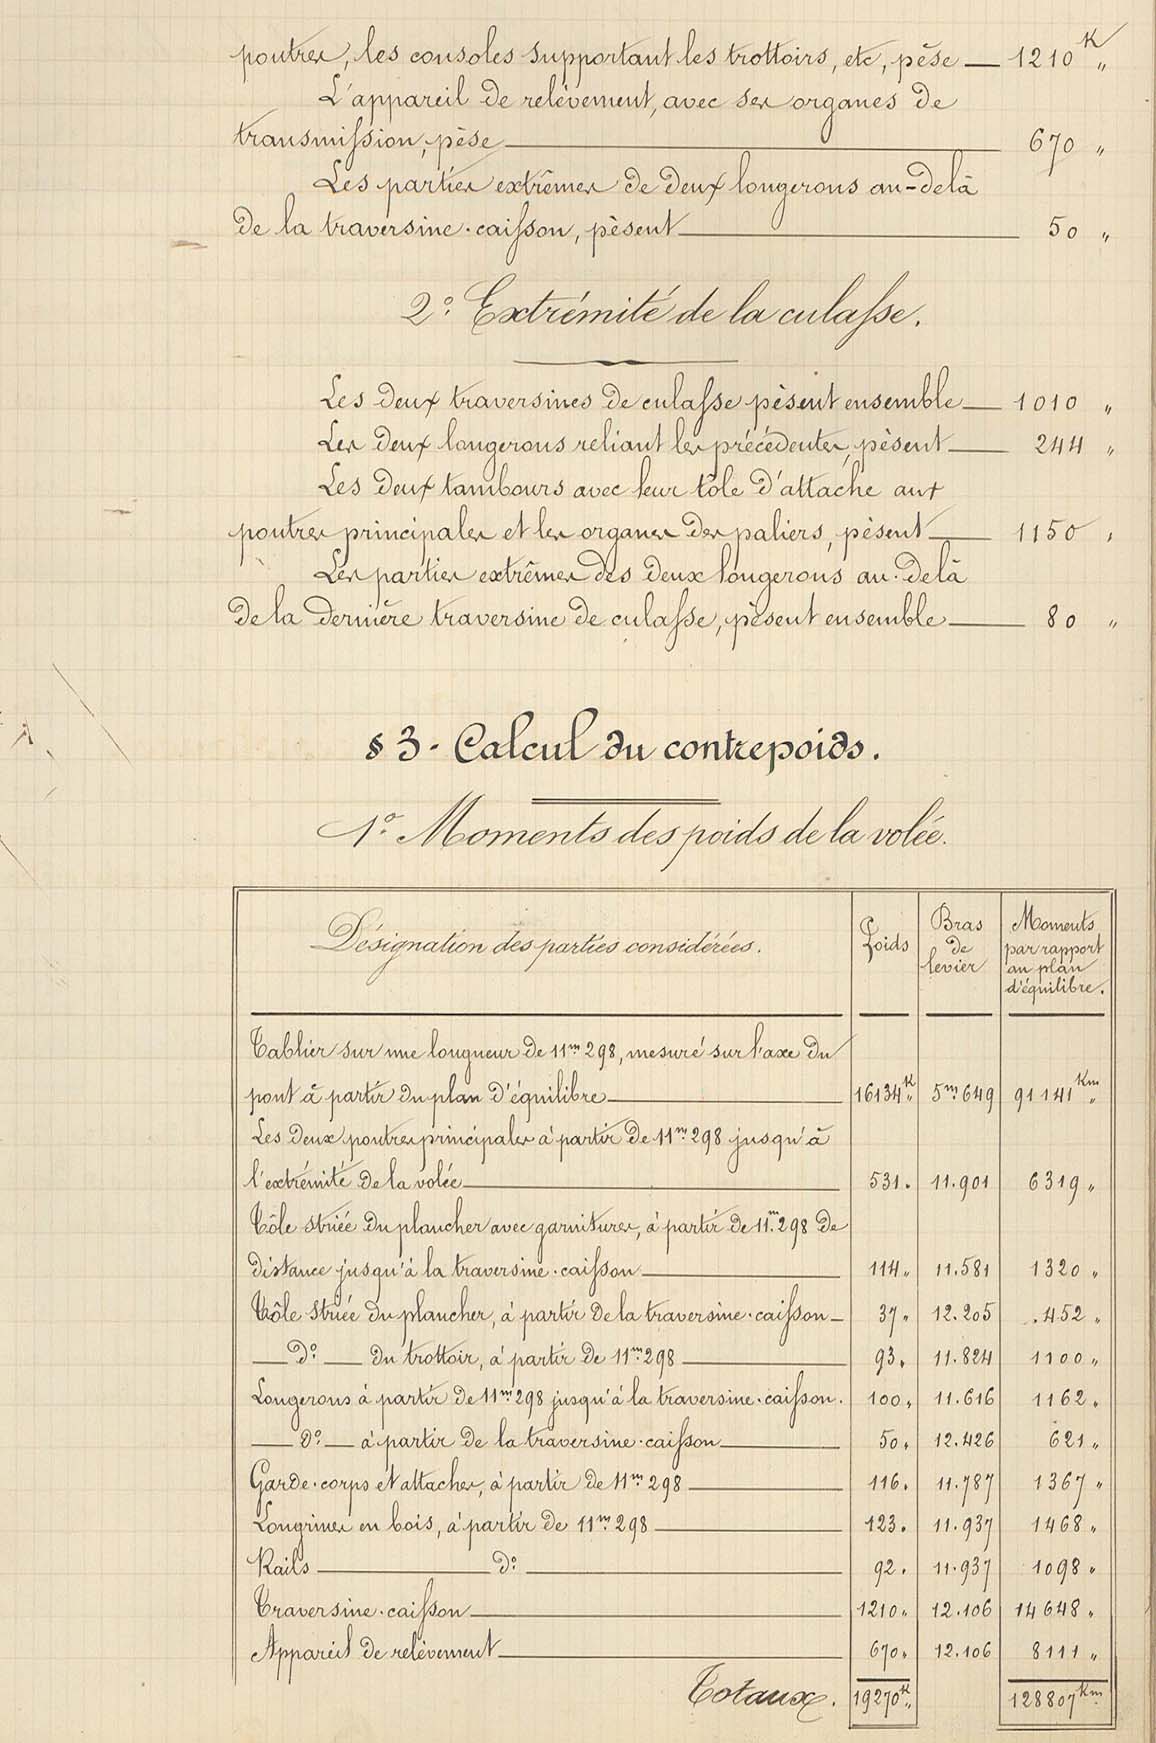 poutres, les consoles supportant les trottoirs, etc, pèse — 1210 K „
L'appareil de relèvement, avec ses organes de
transmission, pèse — 670 „
Les parties extrêmes de deux longerons au-delà
de la traversine-caisson, pèsent — 50 „
2° Extrémité de la culasse.
Les deux traversines de culasse pèsent ensemble — 1010 „
Les deux longerons reliant les précédentes, pèsent — 244 „
Les deux tambours avec leur tôle d'attache aux
poutres principales et les organes des paliers, pèsent — 1150 „
Les parties extrêmes des deux longerons au-delà
de la dernière traversine de culasse, pèsent ensemble — 80 „
§ 3 - Calcul du contrepoids.
1° Moments des poids de la volée.
Désignation des parties considérées. Poids Bras de levier Moments par rapport au plan d'équilibre.
Tablier sur une longueur de 11m298, mesuré sur l'axe du
pont à partir du plan d'équilibre — 16134K„ 5m649 91141Km„
Les deux poutres principales à partir de 11m298 jusqu'à
l'extrémité de la volée — 531„ 11.901 6319„
Tôle striée du plancher avec garnitures, à partir de 11m298 de
distance jusqu'à la traversine-caisson — 114„ 11.581 1320„
Tôle striée du plancher, à partir de la traversine-caisson — 37„ 12.205 .452„
— d° — du trottoir, à partir de 11m298 — 93„ 11.824 1100„
Longerons à partir de 11m298 jusqu'à la traversine-caisson. 100„ 11.616 1162„
— d° — à partir de la traversine-caisson — 50„ 12.426 621„
Garde-corps et attaches, à partir de 11m298 — 116„ 11.787 1367„
Longrines en bois, à partir de 11m298 — 123„ 11.937 1468„
Rails — d° — 92„ 11.937 1098„
Traversine-caisson — 1210„ 12.106 14648„
Appareil de relèvement — 670„ 12.106 8111„
Totaux. 19270K„ 128807Km